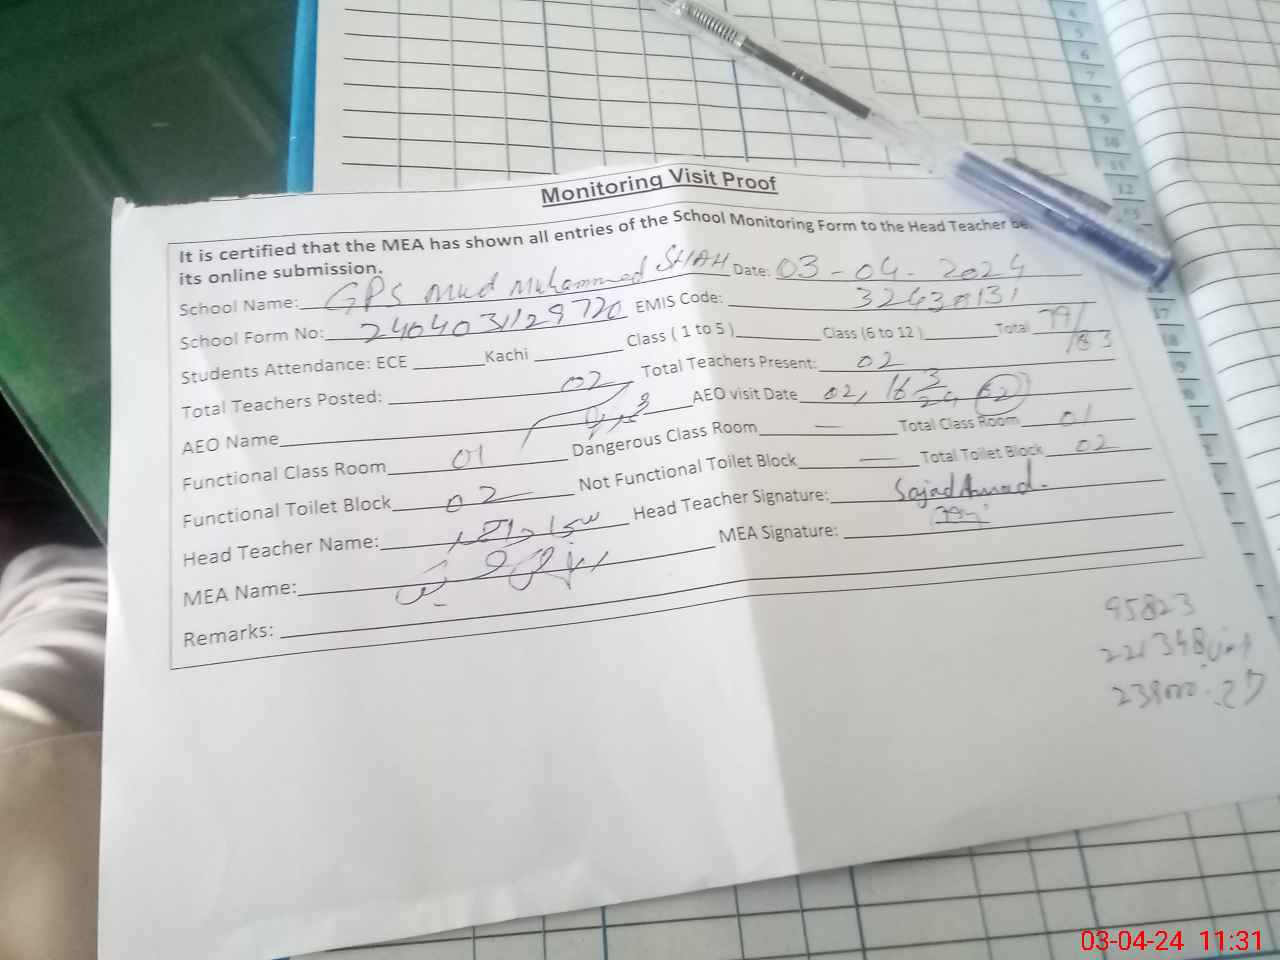 Monitoring Visit Proof
It is certified that the MEA has shown all entries of the School Monitoring Form to the Head Teacher be
its online submission.
School Name: GPS Mud Muhammad SHAH Date: 03-04-2024
School Form No: 2404031129720 EMIS Code: 32430131
Students Attendance: ECE Kachi Class ( 1 to 5 ) Class (6 to 12 ) Total 79/83
Total Teachers Posted: 02 Total Teachers Present: 02
AEO Name AEO visit Date 02, 16
Functional Class Room 01 Dangerous Class Room — Total Class Room 01
Functional Toilet Block 02 Not Functional Toilet Block — Total Toilet Block 02
Head Teacher Name: سجاد احمد Head Teacher Signature: Sajad Ahmad.
MEA Name: MEA Signature:
Remarks:
95823
221348
4
5
6
7
8
9
10
11
12
13
17
18
03-04-24 11:31